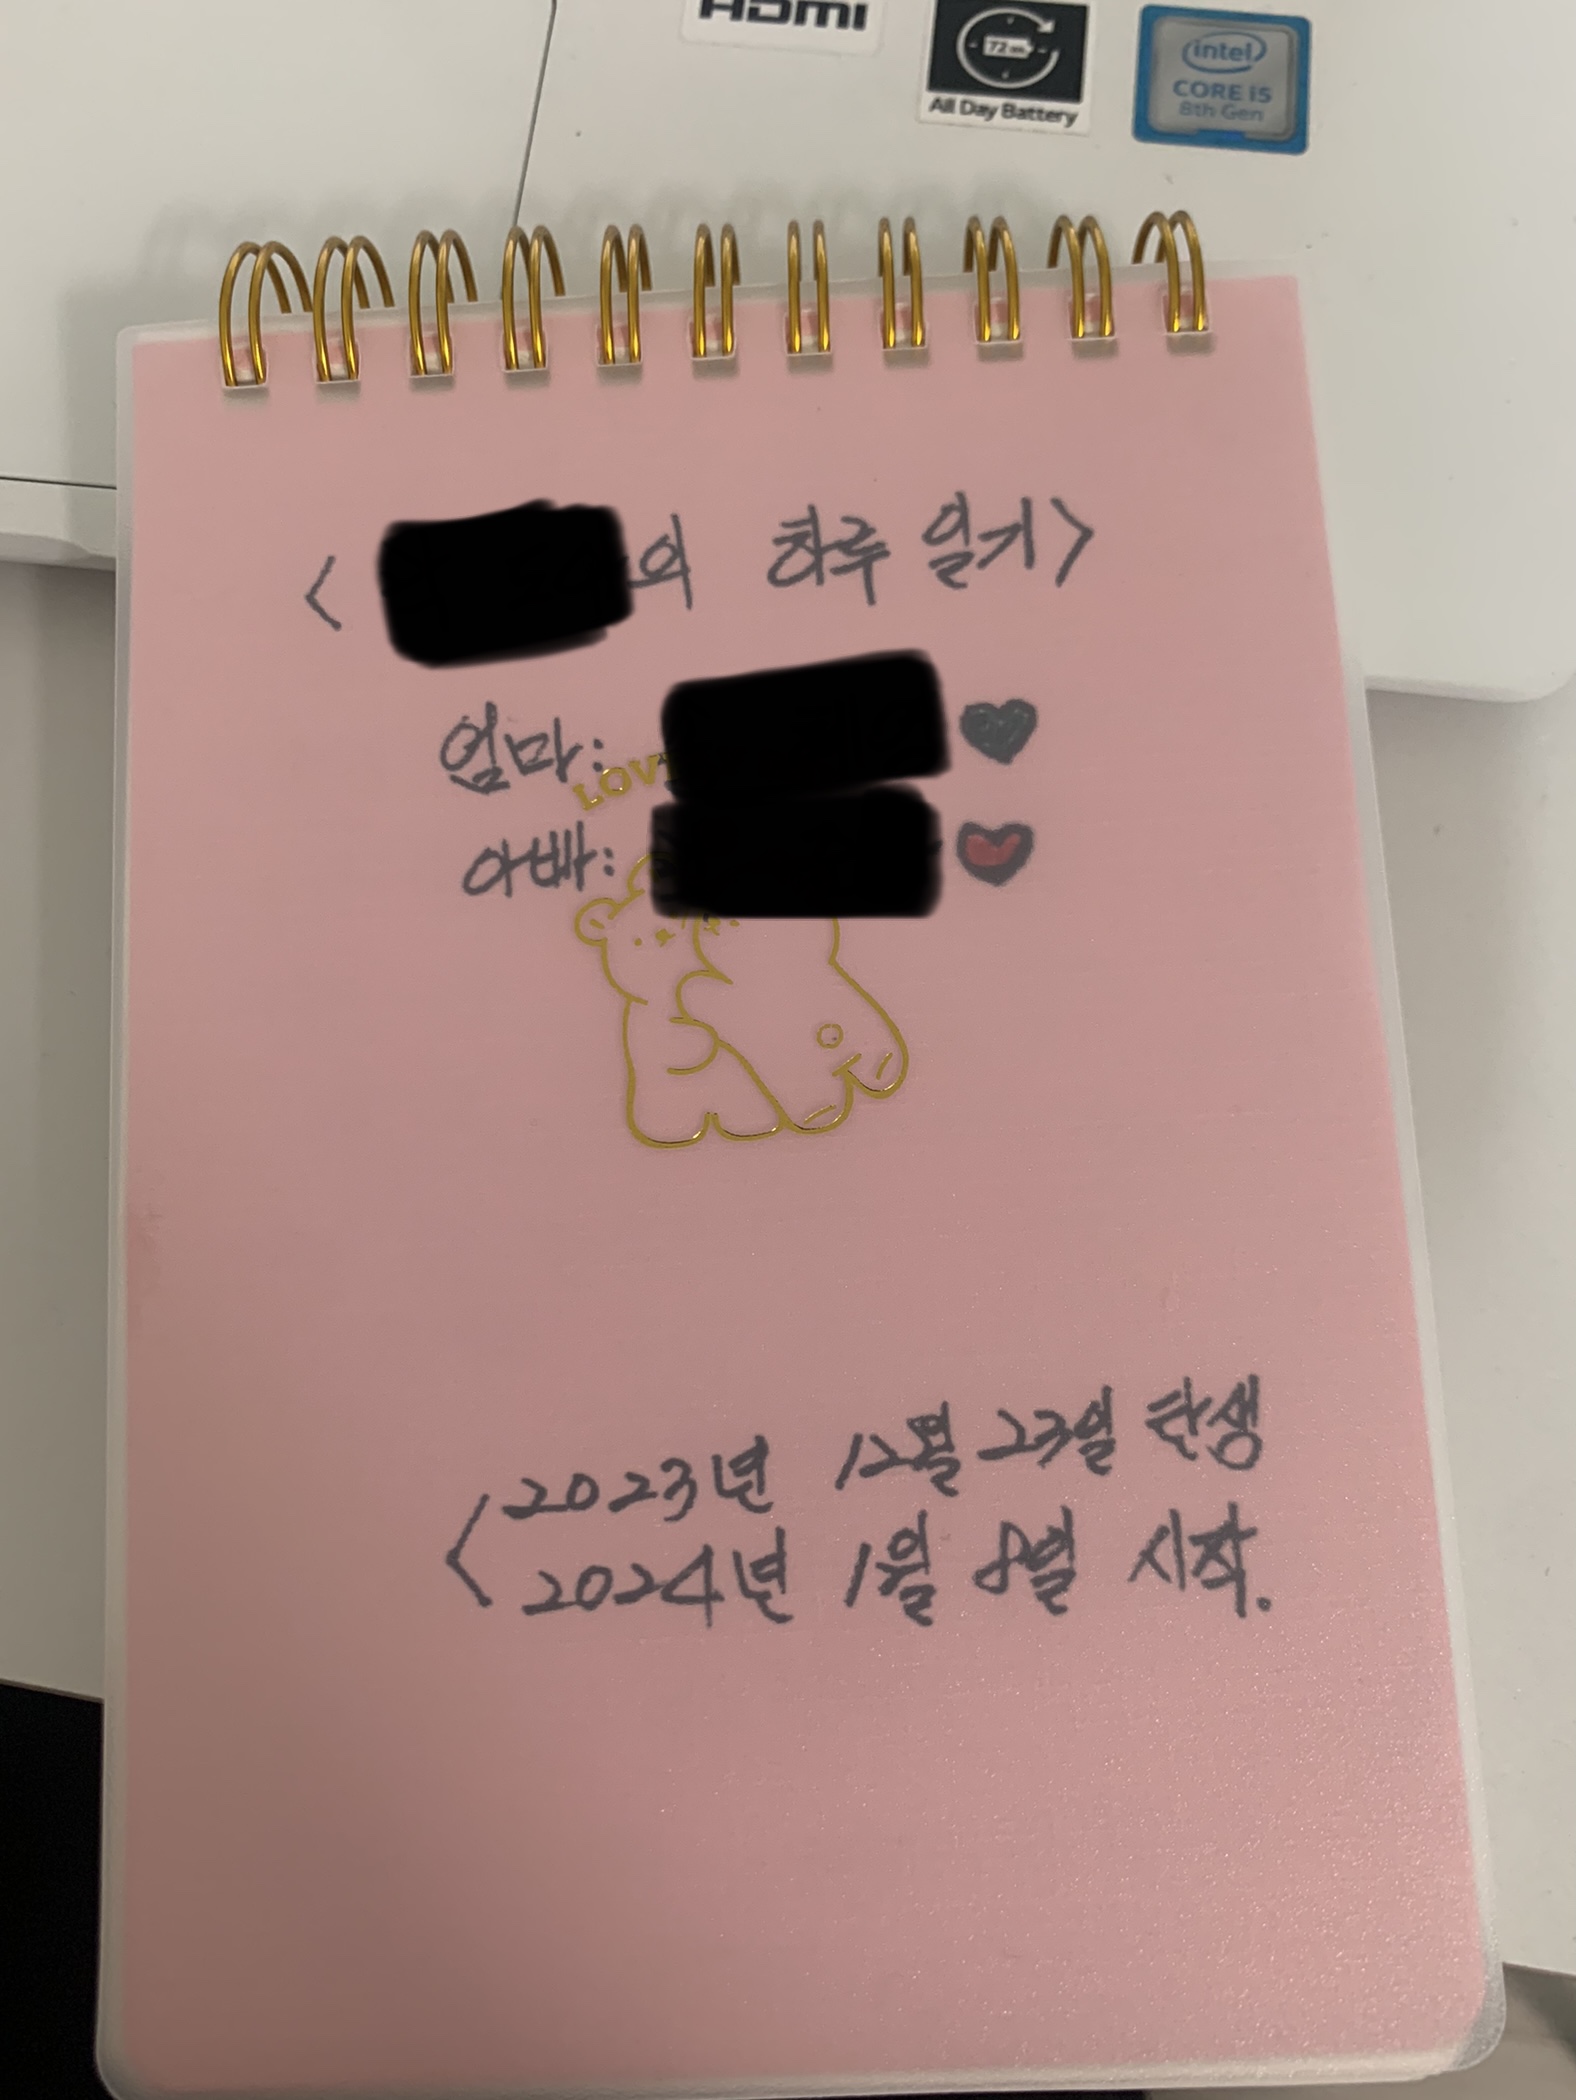 HDMI
72Wh
All Day Battery
intel
CORE i5
8th Gen
< 의 하루 일기>
엄마:
LOV
아빠:
2023년 12월 23일 탄생
2024년 1월 8일 시작.